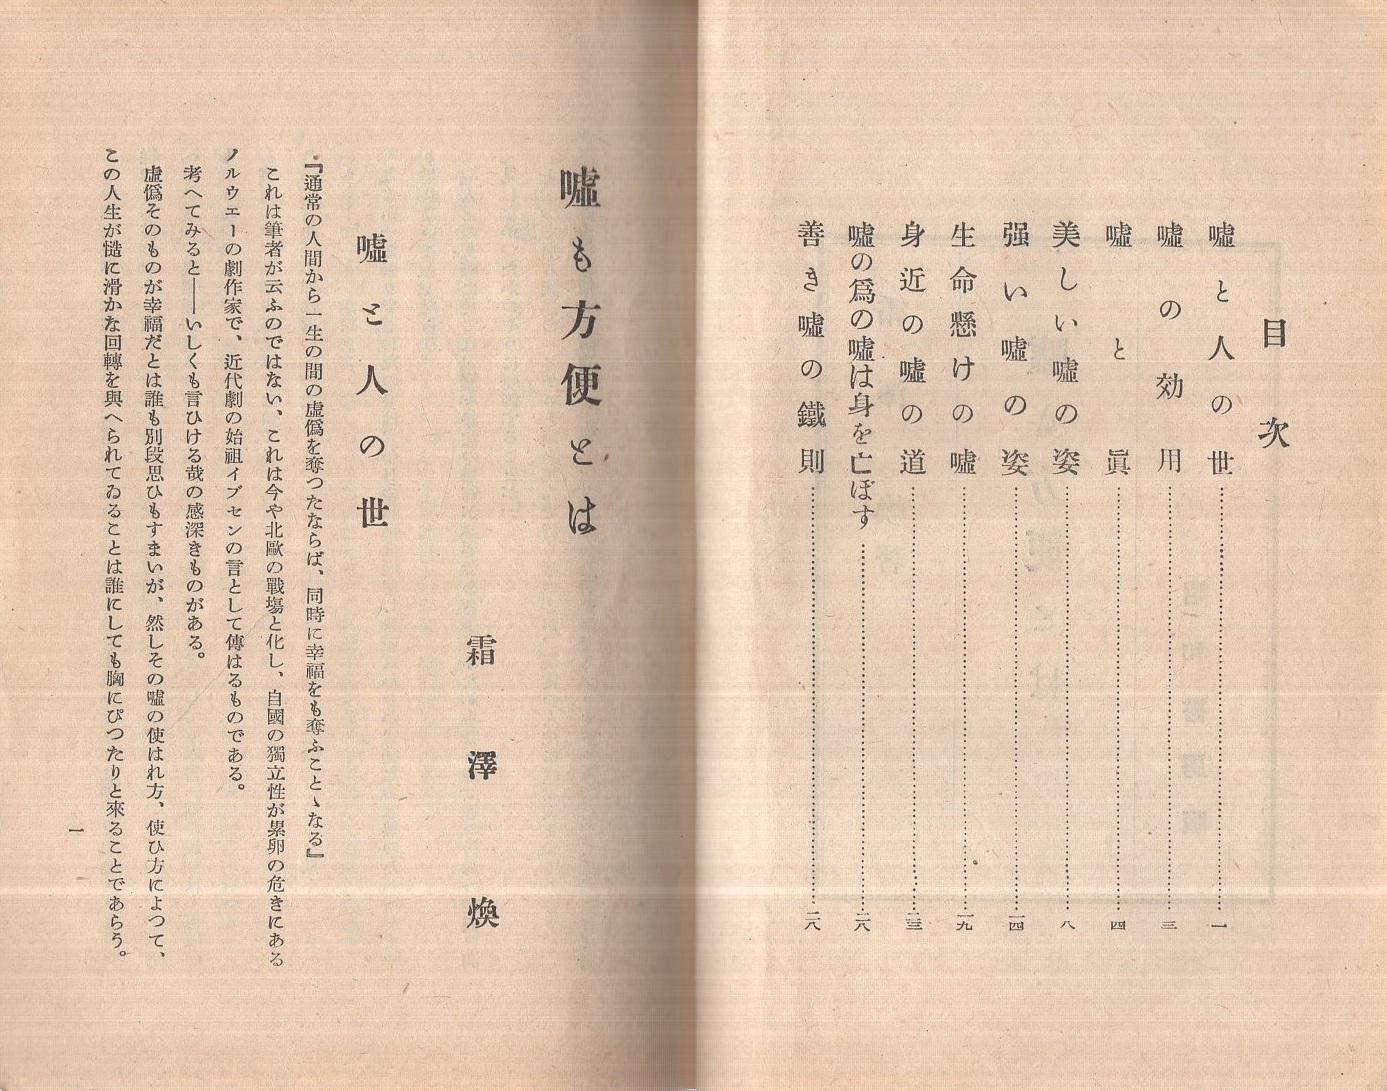 目次
嘘と人の世……一
嘘の効用……三
嘘と眞……四
美しい嘘の姿……八
强い嘘の姿……一四
生命懸けの嘘……一九
身近の嘘の道……二三
嘘の爲の嘘は身を亡ぼす……二六
善き嘘の鐵則……二八
嘘も方便とは
霜澤煥
嘘と人の世
『通常の人間から一生の間の虛僞を奪つたならば、同時に幸福をも奪ふことゝなる』
これは筆者が云ふのではない、これは今や北歐の戰塲と化し、自國の獨立性が累卵の危きにある
ノルウエーの劇作家で、近代劇の始祖イブセンの言として傳はるものである。
考へてみると――いしくも言ひける哉の感深きものがある。
虛僞そのものが幸福だとは誰も別段思ひもすまいが、然しその嘘の使はれ方、使ひ方によつて、
この人生が慥に滑かな回轉を與へられてゐることは誰にしても胸にぴつたりと來ることであらう。
一